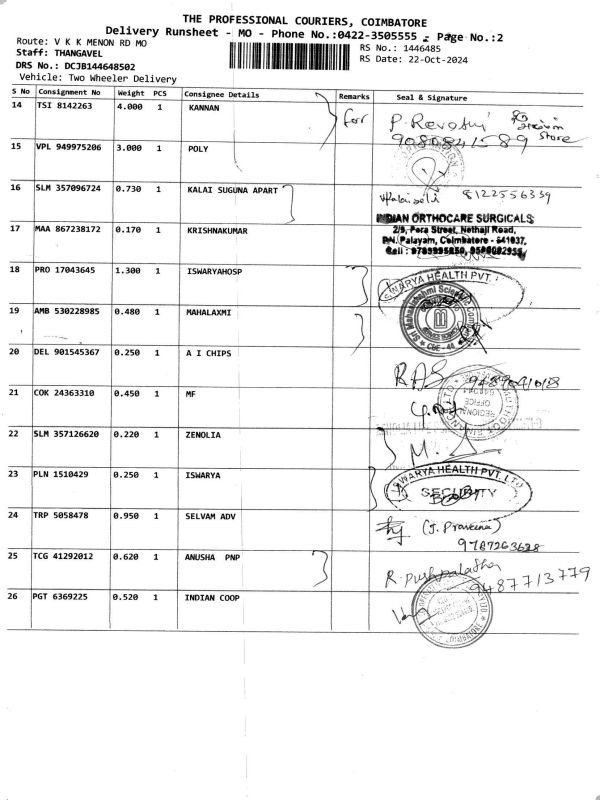 THE PROFESSIONAL COURIERS, COIMBATORE
Delivery Runsheet - MO - Phone No.:0422-3505555 - Page No.:2
Route: V K K MENON RD MO
RS No.: 1446485
Staff: THANGAVEL
RS Date: 22-Oct-2024
DRS No.: DCJB144648502
Vehicle: Two Wheeler Delivery
S No Consignment No Weight PCS Consignee Details Remarks Seal & Signature
14 TSI 8142263 4.000 1 KANNAN for P. Revathi
Store
15 VPL 949975206 3.000 1 POLY
16 SLM 357096724 0.730 1 KALAI SUGUNA APART 8122556339
17 MAA 867238172 0.170 1 KRISHNAKUMAR
INDIAN ORTHOCARE SURGICALS
2/9, Pera Street, Nethaji Road,
P.N. Palayam, Coimbatore - 641037.
18 PRO 17043645 1.300 1 ISWARYAHOSP
SWARYA HEALTH PVT.
19 AMB 530228985 0.480 1 MAHALAXMI
Sri Mahalakshmi
CBE - 44
20 DEL 901545367 0.250 1 A I CHIPS
21 COK 24363310 0.450 1 MF
REGIONAL
OFFICE
22 SLM 357126620 0.220 1 ZENOLIA M.
23 PLN 1510429 0.250 1 ISWARYA
SWARYA HEALTH PVT. LTD
SECURITY
24 TRP 5058478 0.950 1 SELVAM ADV (J. Praveena)
9787263628
25 TCG 41292012 0.620 1 ANUSHA PNP R. Pushpalatha
9487713779
26 PGT 6369225 0.520 1 INDIAN COOP